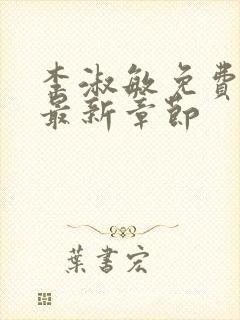 李淑敏免费
最新章節
葉書宏